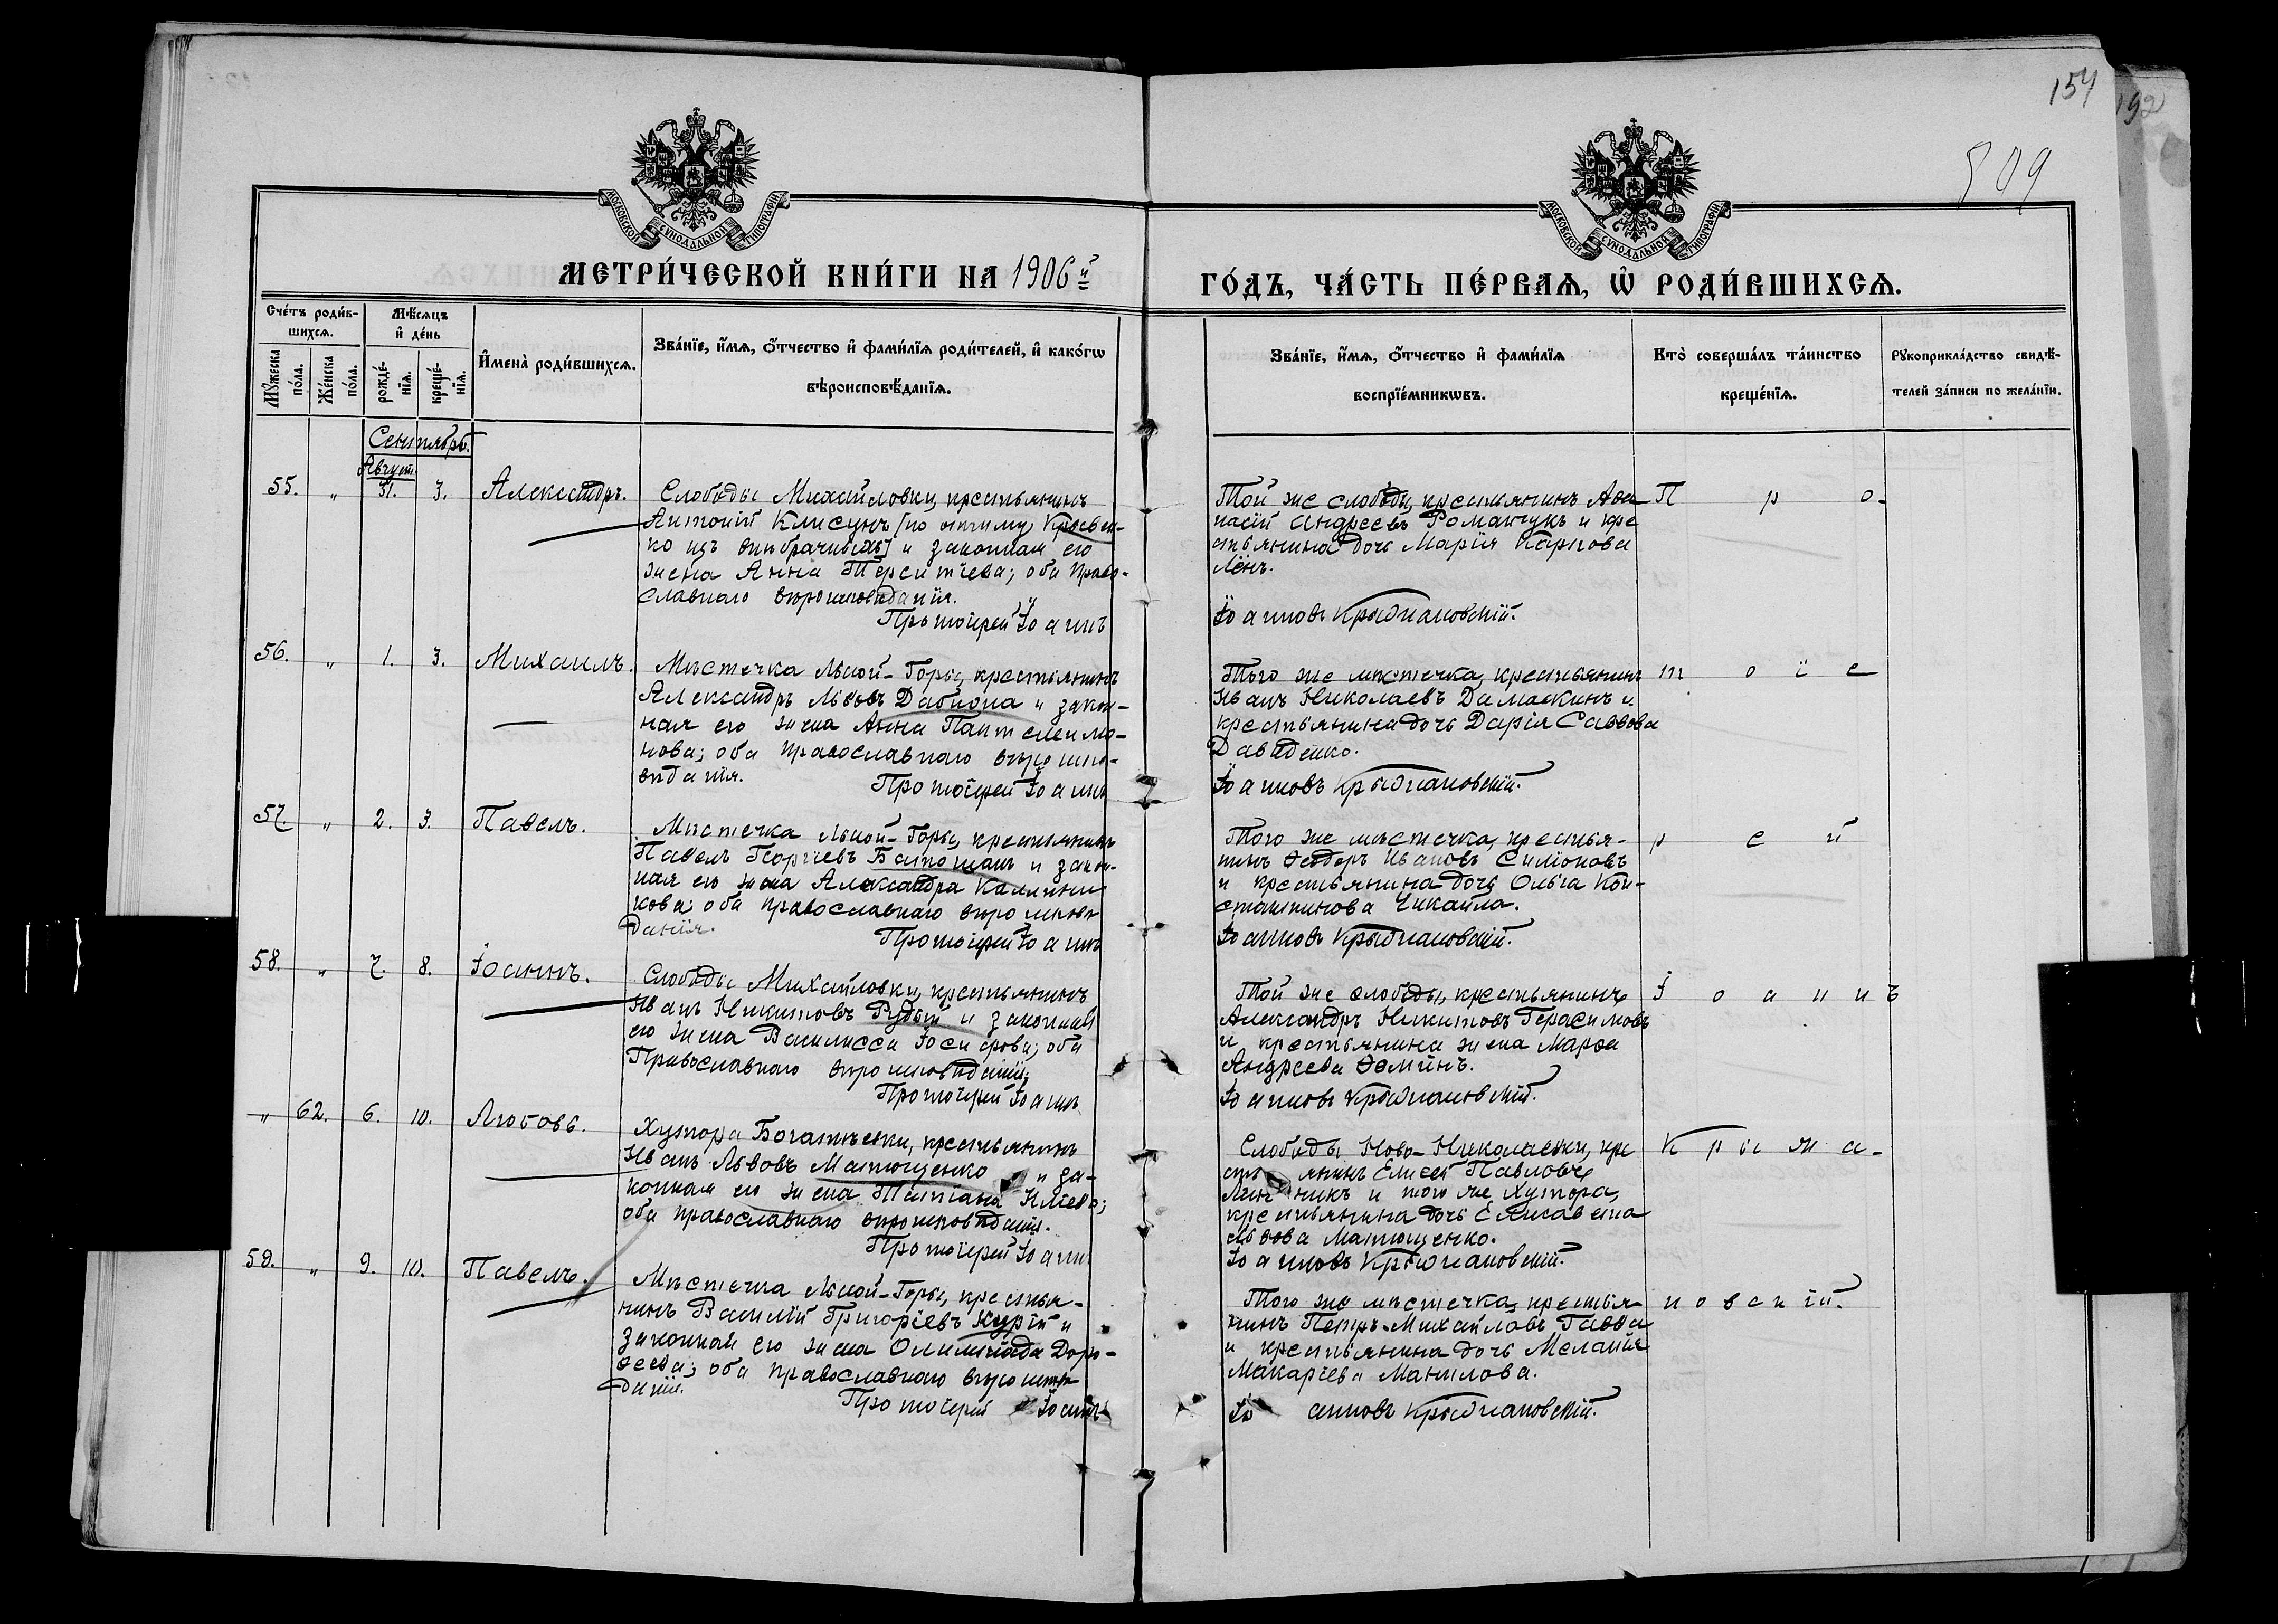 154
192
509
МОСКОВСКОЙ СѴНОДАЛЬНОЙ ТИПОГРАФІИ
МОСКОВСКОЙ СѴНОДАЛЬНОЙ ТИПОГРАФІИ
МЕТРИ́ЧЕСКОЙ КНИ́ГИ НА 1906й
ГО́ДЪ, ЧА́СТЬ ПЕ́РВАѦ, Ѽ РОДИ́ВШИХСѦ.
Сче́тъ роди́в-
шихсѧ.
Мꙋ́жеска по́ла.
Же́нска по́ла.
Мѣ́сѧцъ
и҆ де́нь
рожде́-
нїѧ.
креще́-
нїѧ.
И҆мена̀ роди́вшихсѧ.
Зва́нїе, и҆́мѧ, ѻ҆́тчество и҆ фами́лїѧ роди́телей, и҆ како́гѡ
вѣроисповѣ́данїѧ.
Зва́нїе, и҆́мѧ, ѻ҆́тчество и҆ фами́лїѧ
воспрїе́мникѡвъ.
Кто̀ соверша́лъ та́инство
креще́нїѧ.
Рꙋкоприкла́дство свидѣ́-
телей за́писи по жела́нїю.
Сентябрь.
Август.
55. „ 31. 3. Александръ.
Слободы Михайловки, крестьянинъ
Антоній Клисунъ [по отчиму Кравчен-
ко изъ внѣбрачныхъ] и законная его
жена Анна Терентіева; оба право-
славнаго вѣроисповѣданія.
Протоіерей Іоаннъ
Той же слободы, крестьянинъ Аѳа-
насій Андреевъ Романчукъ и кре
стьянина дочь Марія Карпова
Лёнъ.
Іоанновъ Крыжановскій.
П р о-
56. „ 1. 3. Михаилъ.
Мѣстечка Лысой-Горы, крестьянинъ
Александръ Львовъ Дабижа и закон-
ная его жена Анна Пантелеимо-
нова; оба православнаго вѣроиспо-
вѣданія.
Протоіерей Іоаннъ
Того же мѣстечка, крестьянинъ
Иванъ Николаевъ Дамаскинъ и
крестьянина дочь Дарія Саввова
Давиденко.
Іоанновъ Крыжановскій.
т о і е
57. „ 2. 3. Павелъ.
Мѣстечка Лысой-Горы, крестьянинъ
Павелъ Георгіевъ Батошанъ и закон-
ная его жена Александра Калинни
кова; оба православнаго вѣроисповѣ
данія.
Протоіерей Іоаннъ
Того же мѣстечка, крестья-
нинъ Ѳеодоръ Ивановъ Симіоновъ
и крестьянина дочь Ольга Кон-
стантинова Чикайло.
Іоанновъ Крыжановскій.
р е й
58. „ 7. 8. Іоаннъ.
Слободы Михайловки, крестьянинъ
Иванъ Никитовъ Рудый и законная
его жена Василисса Іосифова; оба
Православнаго вѣроисповѣданія.
Протоіерей Іоаннъ
Той же слободы, крестьянинъ
Александръ Никитовъ Герасимовъ
и крестьянина жена Марѳа
Андреева Ѳоминъ.
Іоанновъ Крыжановскій.
І о а н н ъ
„ 62. 6. 10. Любовь.
Хутора Богатыевки, крестьянинъ
Иванъ Львовъ Матющенко и за-
конная его жена Татіана Иліева;
оба православнаго вѣроисповѣданія.
Протоіерей Іоаннъ
Слободы Ново-Николаевки, кре
стьянинъ Елисей Павловъ
и того же хутора,
крестьянина дочь Елисавета
Львова Матющенко.
Іоанновъ Крыжановскій.
К р ы ж а-
59. „ 9. 10. Павелъ.
Мѣстечка Лысой-Горы, крестья-
нинъ Василій Григоріевъ Курій и
законная его жена Олимпіада Доро-
ѳеева; оба православнаго вѣроисповѣ
данія.
Протоіерей Іоаннъ
Того же мѣстечка, крестья-
нинъ Петръ Михайловъ Гавва
и крестьянина дочь Меланія
Макаріева Манилова.
Іоанновъ Крыжановскій.
н о в с к і й.